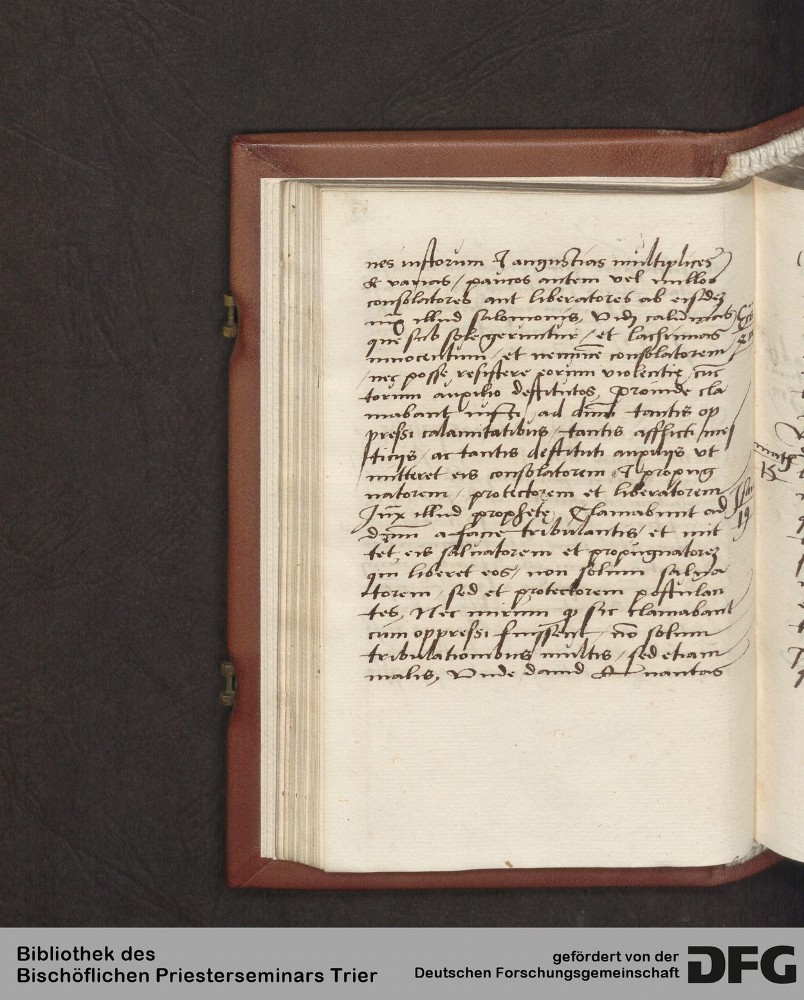 nes iustorum & angustias multiplices
& varias / paucos autem vel nullos
consolatores aut liberatores ab eisdē
illud salomonis, Vidi calūnias
que sub sole geruntur / et lachrimas
innocentium / et neminē consolatorem
/ nec posse resistere eorum violentię / cūc
torum auxilio destitutos, Proinde cla
mabant iusti ad dnm tantis op
pressi calamitatibus / tantis afflicti mes
ticijs / ac tantis destituti auxilijs vt
mitteret eis consolatorem & propug
natorem / protectorem et liberatorem
Iuxͣ illud prophetę, Clamabunt ad
dnm a facie tribulantis / et mit
tet eis saluatorem et propugnatorē
qui liberet eos / non solum salua
torem / sed et protectorem postulan
tes, Nec mirum q sic clamabant
cum oppressi fuissent / nō solum
tribulationibus multis / sed etiam
malis, Vnde dauid Quantas
Isai
19
math
15
Bibliothek des
Bischöflichen Priesterseminars Trier
gefördert von der
Deutschen Forschungsgemeinschaft
DFG